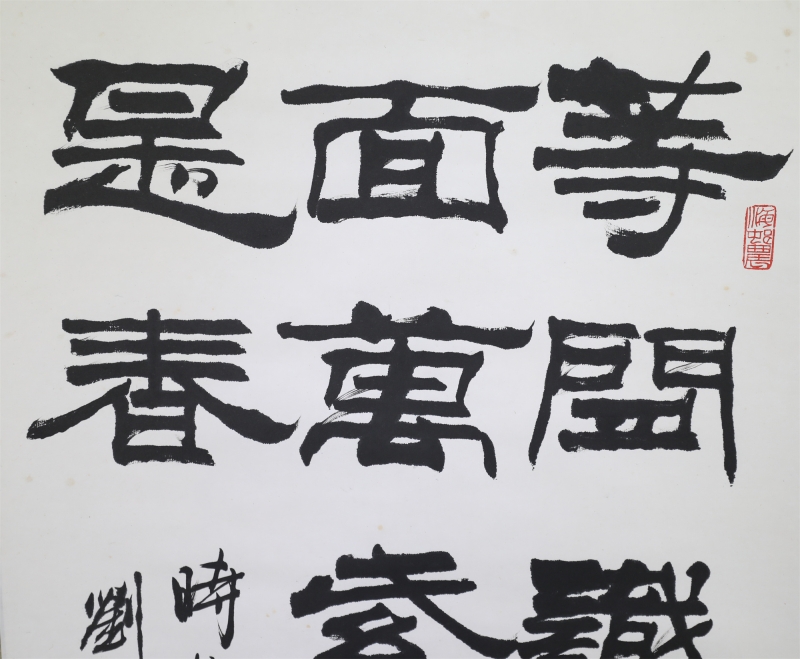 等間識
面萬紫
是春
時
劉